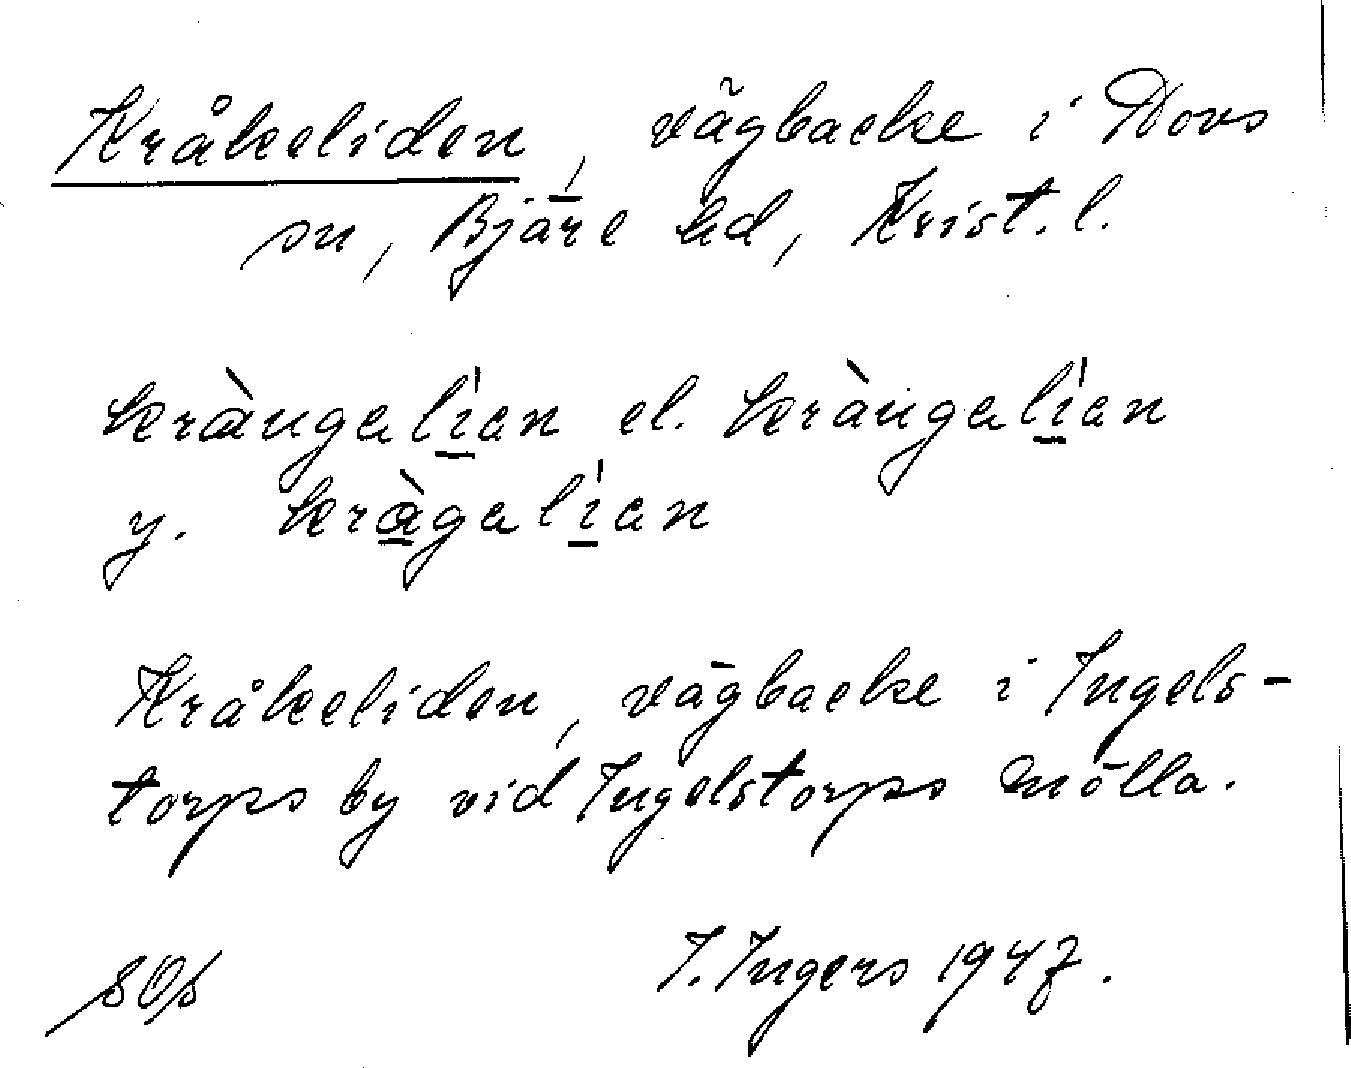 Kråkeliden, vägbacke i Hovs
sn, Bjäre hd, Krist. l.
kràngalían el. kràngalían
y. kràgalían
Kråkeliden, vägbacke i Ingels-
torps by vid Ingelstorps mölla.
I. Ingers 1947.